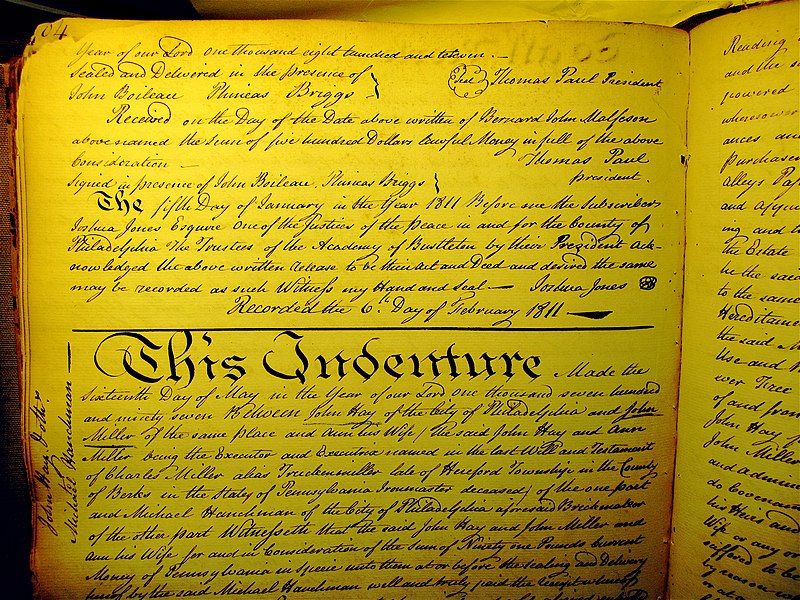 Year of our Lord one thousand eight hundred and eleven.
Sealed and Delivered in the presence of
John Boileau Phineas Briggs } Thomas Paul President
Received on the Day of the Date above written of Bernard John
above named the Sum of five hundred Dollars Lawful Money in full of the above
Consideration — Thomas Paul
Signed in presence of John Boileau, Phineas Briggs } president
The fifth Day of January in the Year 1811 Before me the Subscriber
Joshua Jones Esquire One of the Justices of the peace in and for the County of
Philadelphia The Trustees of the Academy of Bustleton by their President Ack-
nowledged the above written release to be their Act and Deed and desired the same
may be recorded as such Witness my Hand and Seal — Joshua Jones
Recorded the 6th Day of February 1811 —
This Indenture Made the
Sixteenth Day of May in the Year of our Lord one thousand seven hundred
and ninety seven Between John Hay of the City of Philadelphia and John
Miller of the same place and Ann his Wife (the said John Hay and Ann
Miller being the Executor and Executrix named in the last Will and Testament
of Charles Miller alias late of Hereford Township in the County
of Berks in the State of Pennsylvania Ironmaster deceased) of the one part
and Michael Hanchman of the City of Philadelphia aforesaid Brickmaker
of the other part Witnesseth that the said John Hay and John Miller and
Ann his Wife for and in Consideration of the Sum of Ninety one Pounds Current
Money of Pennsylvania in specie unto them at or before the sealing and Delivery
hereof by the said Michael Hanchman well and truly paid the receipt whereof
John Hay & othrs
Michael Hanchman
Reading
and the
powered
whensoever
ances and
purchases
Alleys Pas
and
ing and
the Estate
be the said
to the same
Hereditame
the said M
Use and
ever Three
of and from
John Hay
John Miller
and Admin
do Covenan
his Heirs and
Wife or any or
suffered to be
by reason